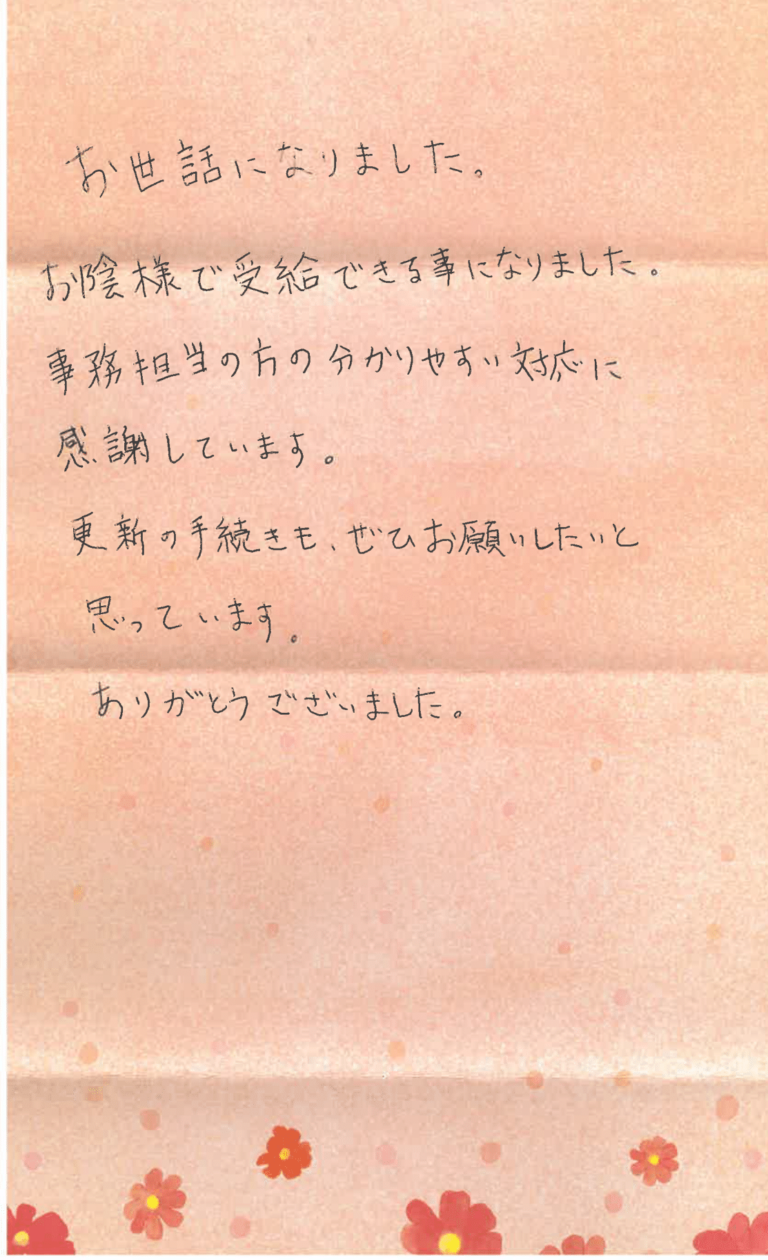 お世話になりました。
お陰様で受給できる事になりました。
事務担当の方の分かりやすい対応に
感謝しています。
更新の手続きも、ぜひお願いしたいと
思っています。
ありがとうございました。